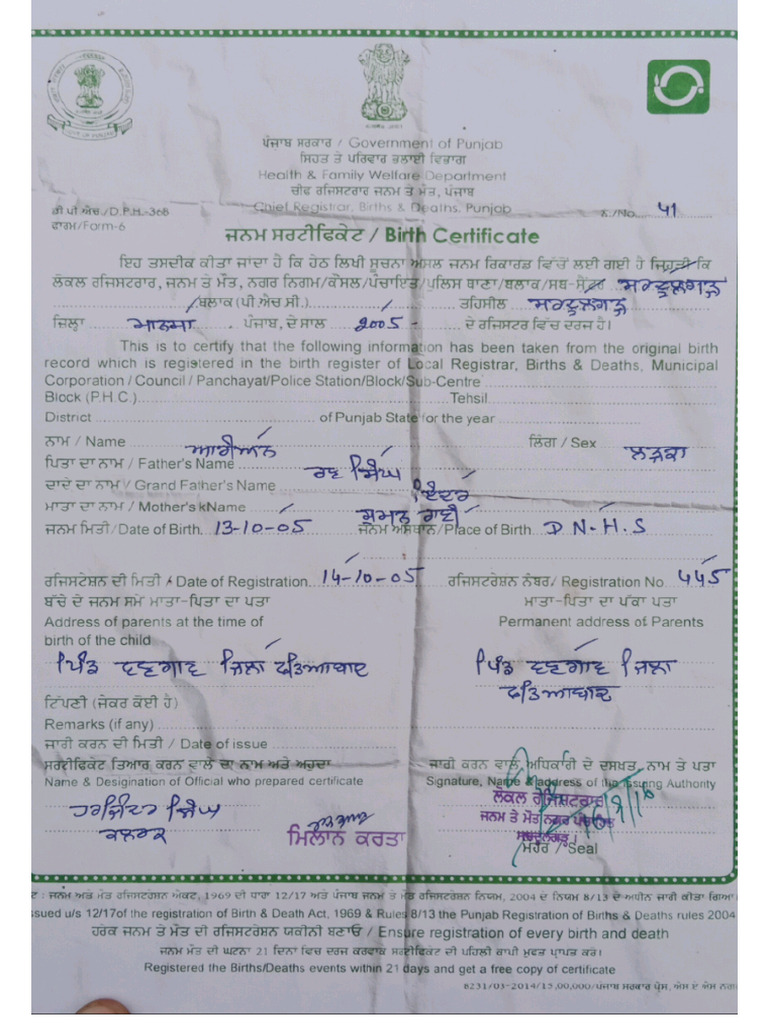 ਪੰਜਾਬ ਸਰਕਾਰ / Government of Punjab
ਸਿਹਤ ਤੇ ਪਰਿਵਾਰ ਭਲਾਈ ਵਿਭਾਗ
Health & Family Welfare Department
ਚੀਫ ਰਜਿਸਟਰਾਰ ਜਨਮ ਤੇ ਮੌਤ, ਪੰਜਾਬ
Chief Registrar, Births & Deaths, Punjab
ਡੀ ਪੀ ਐਚ./D.P.H.-368
ਨੰ./No. 41
ਫਾਰਮ/Form-6
ਜਨਮ ਸਰਟੀਫਿਕੇਟ / Birth Certificate
ਇਹ ਤਸਦੀਕ ਕੀਤਾ ਜਾਂਦਾ ਹੈ ਕਿ ਹੇਠ ਲਿਖੀ ਸੂਚਨਾ ਅਸਲ ਜਨਮ ਰਿਕਾਰਡ ਵਿੱਚੋਂ ਲਈ ਗਈ ਹੈ ਜਿਹੜੀ ਕਿ
ਲੋਕਲ ਰਜਿਸਟਰਾਰ, ਜਨਮ ਤੇ ਮੌਤ, ਨਗਰ ਨਿਗਮ/ਕੌਂਸਲ/ਪੰਚਾਇਤ/ਪੁਲਿਸ ਥਾਣਾ/ਬਲਾਕ/ਸਬ-ਸੈਂਟਰ ਸਰਦੂਲਗੜ੍ਹ
/ਬਲਾਕ (ਪੀ ਐਚ ਸੀ.) ਤਹਿਸੀਲ ਸਰਦੂਲਗੜ੍ਹ
ਜ਼ਿਲ੍ਹਾ ਮਾਨਸਾ ਪੰਜਾਬ, ਦੇ ਸਾਲ 2005 ਦੇ ਰਜਿਸਟਰ ਵਿੱਚ ਦਰਜ ਹੈ।
This is to certify that the following information has been taken from the original birth
record which is registered in the birth register of Local Registrar, Births & Deaths, Municipal
Corporation / Council / Panchayat/Police Station/Block/Sub-Centre
Block (P.H.C.) Tehsil
District of Punjab State for the year
ਨਾਮ / Name ਆਰੀਅਨ ਲਿੰਗ / Sex ਲੜਕਾ
ਪਿਤਾ ਦਾ ਨਾਮ / Father's Name ਸਿੰਘ
ਦਾਦੇ ਦਾ ਨਾਮ / Grand Father's Name
ਮਾਤਾ ਦਾ ਨਾਮ / Mother's kName ਸੁਮਨ ਰਾਣੀ
ਜਨਮ ਮਿਤੀ/Date of Birth 13-10-05 ਜਨਮ ਅਸਥਾਨ/Place of Birth D N.H.S
ਰਜਿਸਟੇਸ਼ਨ ਦੀ ਮਿਤੀ / Date of Registration 14-10-05 ਰਜਿਸਟਰੇਸ਼ਨ ਨੰਬਰ/ Registration No 445
ਬੱਚੇ ਦੇ ਜਨਮ ਸਮੇਂ ਮਾਤਾ-ਪਿਤਾ ਦਾ ਪਤਾ ਮਾਤਾ-ਪਿਤਾ ਦਾ ਪੱਕਾ ਪਤਾ
Address of parents at the time of Permanent address of Parents
birth of the child
ਪਿੰਡ ਜਿਲਾ ਫਤਿਆਬਾਦ ਪਿੰਡ ਜਿਲਾ
ਫਤਿਆਬਾਦ
ਟਿੱਪਣੀ (ਜੇਕਰ ਕੋਈ ਹੈ)
Remarks (if any)
ਜਾਰੀ ਕਰਨ ਦੀ ਮਿਤੀ / Date of issue
ਸਰਟੀਫਿਕੇਟ ਤਿਆਰ ਕਰਨ ਵਾਲੇ ਦਾ ਨਾਮ ਅਤੇ ਅਹੁਦਾ ਜਾਰੀ ਕਰਨ ਵਾਲੇ ਅਧਿਕਾਰੀ ਦੇ ਦਸਖਤ, ਨਾਮ ਤੇ ਪਤਾ
Name & Designation of Official who prepared certificate Signature, Name & address of the issuing Authority
ਹਰਜਿੰਦਰ ਸਿੰਘ ਲੋਕਲ ਰਜਿਸਟਰਾਰ
ਕਲਰਕ ਮਿਲਾਨ ਕਰਤਾ ਜਨਮ ਤੇ ਮੌਤ ਨਗਰ ਪੰਚਾਇਤ
ਸਰਦੂਲਗੜ੍ਹ।
ਮੋਹਰ / Seal
ਜਨਮ ਅਤੇ ਮੌਤ ਰਜਿਸਟਰੇਸ਼ਨ ਐਕਟ, 1969 ਦੀ ਧਾਰਾ 12/17 ਅਤੇ ਪੰਜਾਬ ਜਨਮ ਤੇ ਮੌਤ ਰਜਿਸਟਰੇਸ਼ਨ ਨਿਯਮ, 2004 ਦੇ ਨਿਯਮ 8/13 ਦੇ ਅਧੀਨ ਜਾਰੀ ਕੀਤਾ ਗਿਆ
ssued u/s 12/17of the registration of Birth & Death Act, 1969 & Rules 8/13 the Punjab Registration of Births & Deaths rules 2004
ਹਰੇਕ ਜਨਮ ਤੇ ਮੌਤ ਦੀ ਰਜਿਸਟਰੇਸ਼ਨ ਯਕੀਨੀ ਬਣਾਓ / Ensure registration of every birth and death
ਜਨਮ ਮੌਤ ਦੀ ਘਟਨਾ 21 ਦਿਨਾਂ ਵਿਚ ਦਰਜ ਕਰਵਾਕੇ ਸਰਟੀਫਿਕੇਟ ਦੀ ਪਹਿਲੀ ਕਾਪੀ ਮੁਫਤ ਪ੍ਰਾਪਤ ਕਰੋ।
Registered the Births/Deaths events within 21 days and get a free copy of certificate
8231/03-2014/15,00,000/ਪੰਜਾਬ ਸਰਕਾਰ ਪ੍ਰੈਸ, ਐਸ ਏ ਐਸ ਨਗਰ